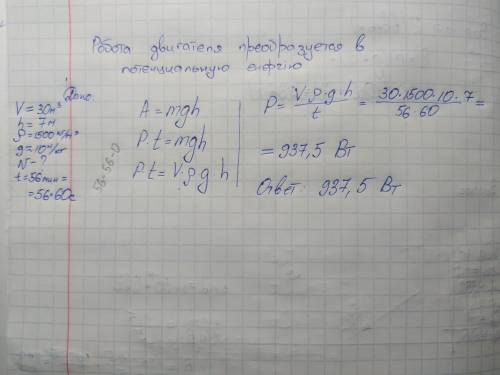 Робота двигателя преобразуется в
потенциальную енергию
Дано:
V = 30м³
h = 7м
ρ = 1500 кг/м³
g = 10 н/кг
N - ?
t = 56 мин =
= 56·60с
A = mgh
P·t = mgh
P·t = V·ρ·g·h
P = V·ρ·g·h / t = 30·1500·10·7 / 56·60 =
= 937,5 Вт
Ответ: 937,5 Вт